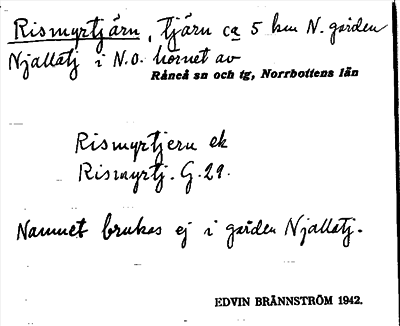 Rismyrtjärn, tjärn ca 5 km N. gården
Njallatj i N.O. hörnet av
Råneå sn och tg, Norrbottens län
Rismyrtjern ek
Rismyrtj. G.29.
Namnet brukas ej i gården Njallatj.
EDVIN BRÄNNSTRÖM 1942.